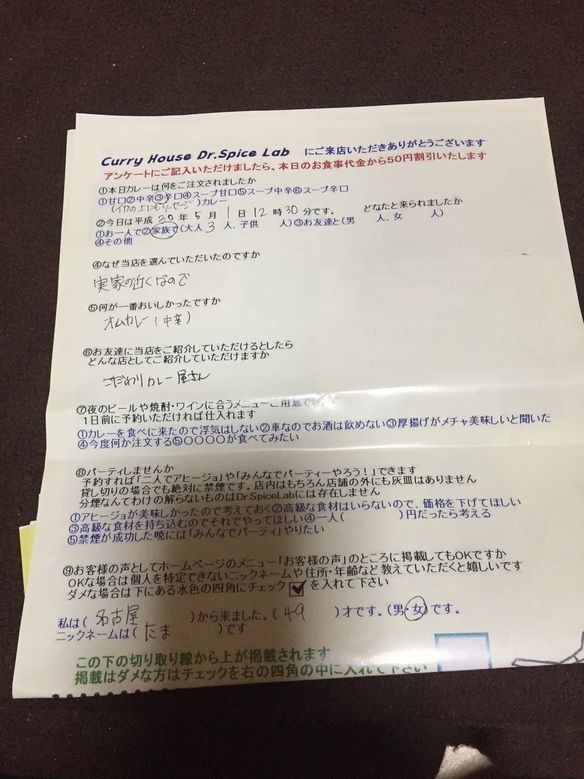 Curry House Dr.Spice Lab にご来店いただきありがとうございます
アンケートにご記入いただけましたら、本日のお食事代金から50円割引いたします
①本日カレーは何をご注文されましたか
①甘口②中辛③辛口④スープ甘口⑤スープ中辛⑥スープ辛口
カレー
②今日は平成 30 年 5 月 1 日 12 時 30 分です。 どなたと来られましたか
①お一人で②家族で(大人 3 人、子供 人)③お友達と(男 人、女 人)
④その他
④なぜ当店を選んでいただいたのですか
実家の近くなので
⑤何が一番おいしかったですか
オムカレー(中辛)
⑥お友達に当店をご紹介していただけるとしたら
どんな店としてご紹介していただけますか
こだわりカレー屋さん
⑦夜のビールや焼酎・ワインに合うメニューご用意
1日前に予約いただければ仕入れます
①カレーを食べに来たので浮気はしない②車なのでお酒は飲めない③厚揚げがメチャ美味しいと聞いた
④今度何か注文する⑤〇〇〇〇が食べてみたい
⑧パーティしませんか
予約すれば「二人でアヒージョ」や「みんなでパーティーやろう!」できます
貸し切りの場合でも絶対に禁煙です。店内はもちろん店舗の外にも灰皿はありません
分煙なんてわけの解らないものはDr.SpiceLabには存在しません
①アヒージョが美味しかったので考えておく②高級な食材はいらないので、価格を下げてほしい
③高級な食材を持ち込むのでそれでやってほしい④一人( )円だったら考える
⑤禁煙が成功した暁には「みんなでパーティ」やりたい
⑨お客様の声としてホームページのメニュー「お客様の声」のところに掲載してもOKですか
OKな場合は個人を特定できないニックネームや住所・年齢など教えていただくと嬉しいです
ダメな場合は下にある水色の四角にチェック を入れて下さい
私は( 名古屋 )から来ました。( 49 )才です。(男・女)です。
ニックネームは( たま )です
この下の切り取り線から上が掲載されます
掲載はダメな方はチェックを右の四角の中に入れて下さい